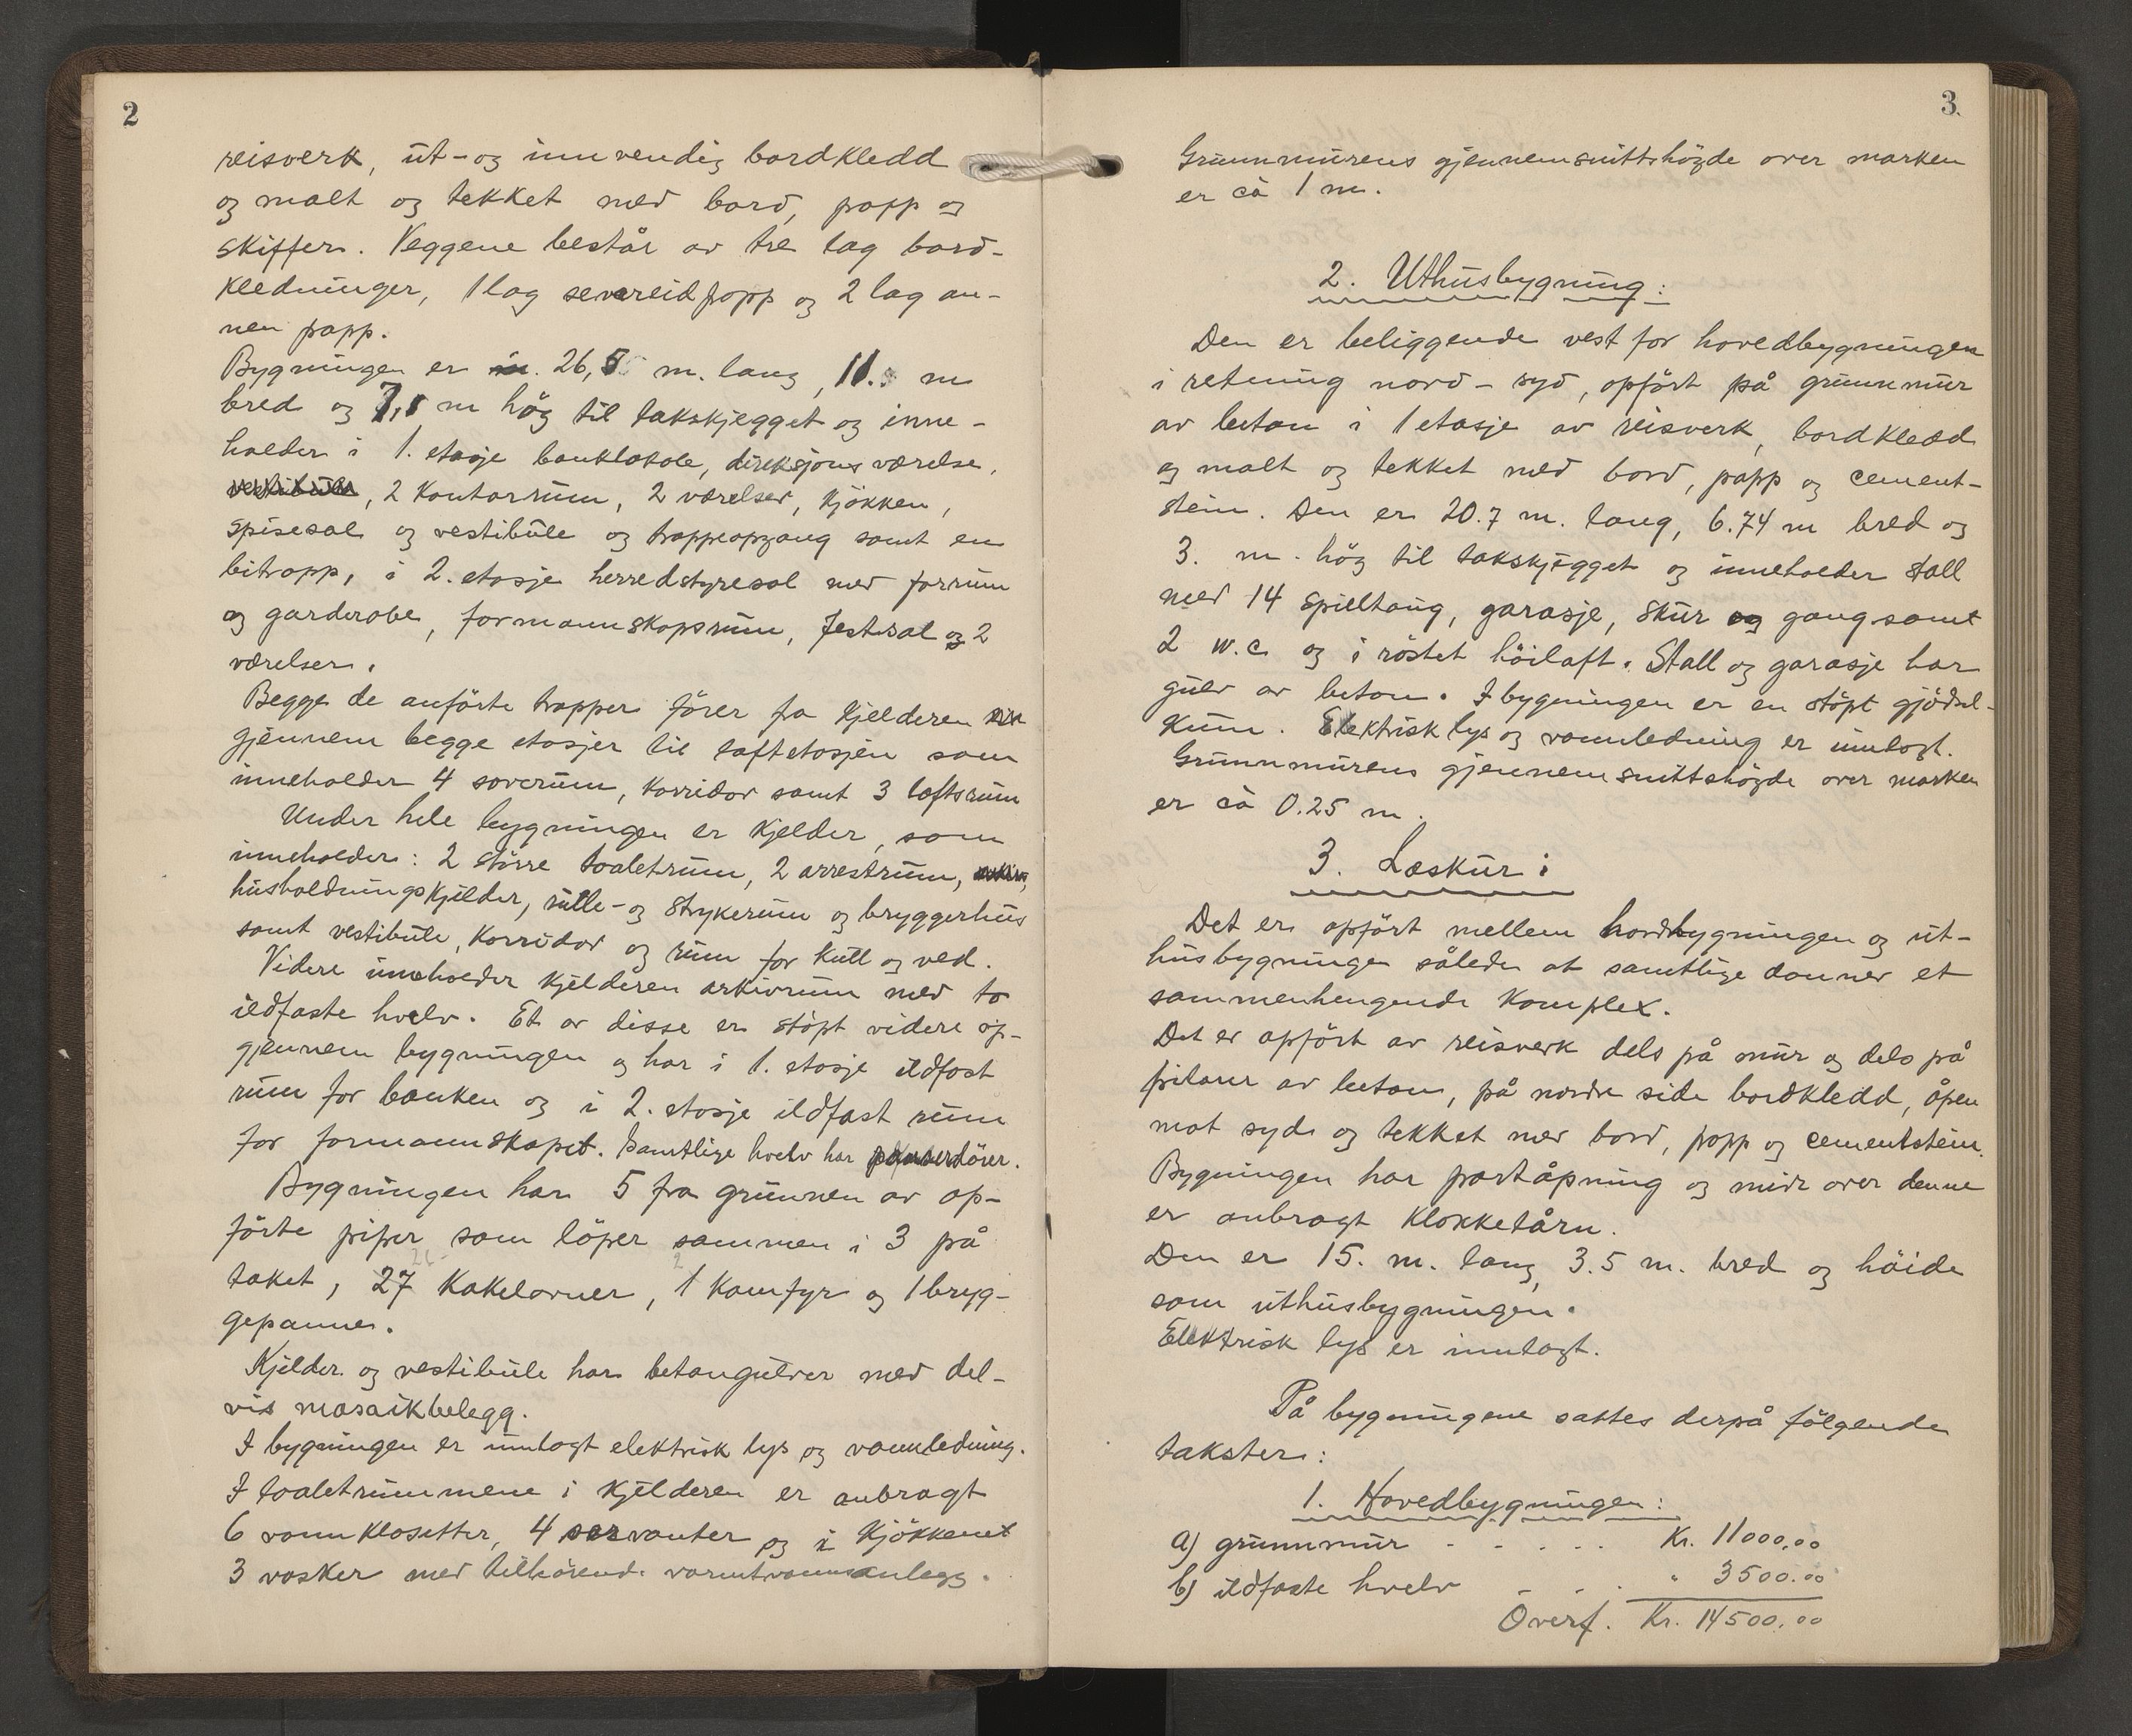 2
reisverk, ut- og innvendig bordkledd
og malt og tekket med bord, papp og
skiffer. Veggene består av tre lag bord-
kledninger, 1 lag severeidpapp og 2 lag an-
nen papp.
Bygningen er 26,5 m. lang, 11. m
bred og 7,5 m hög til takskjegget og inne-
holder i 1. etasje banklokale, direksjonsværelse,
vestibule, 2 kontorrum, 2 værelser, kjökken,
spisesal og vestibule og trappeopgang samt en
bitrapp, i 2. etasje herredstyresal med forrum
og garderobe, formannskapsrum, festsal og 2
værelser.
Begge de anförte trapper förer fra kjelderen
gjennem begge etasjer til loftetasjen som
inneholder 4 soverum, korridor samt 3 loftsrum
Under hele bygningen er kjelder, som
inneholder: 2 större toaletrum, 2 arrestrum,
husholdningskjelder, rulle- og strykerum og bryggerhus
samt vestibule, korridor og rum for kull og ved.
Videre inneholder kjelderen arkivrum med to
ildfaste hvelv. Et av disse er stöpt videre op-
gjennem bygningen og har i 1. etasje ildfast
rum for banken og i 2. etasje ildfast rum
for formannskapet. Samtlige hvelv har panserdörer.
Bygningen har 5 fra grunnen av op-
förte piper som löper sammen i 3 på
taket, 27 kakelovner, 1 komfyr og 1 bryg-
gepanne.
Kjelder og vestibule har betongulver med del-
vis mosaikbelegg.
I bygningen er innlagt elektrisk lys og vannledning.
I toaletrummene i kjelderen er anbragt
6 vannklosetter, 4 servanter og i kjökkenet
3 vasker med tilhörende varmtvannsanlegg.
3.
Grunnmurens gjennemsnittshögde over marken
er cà 1 m.
2. Uthusbygning:
Den er beliggende vest for hovedbygningen
i retning nord - syd, opfört på grunnmur
av beton i 1 etasje av reisverk, bordkledd
og malt og tekket med bord, papp og cement-
stein. Den er 20.7 m. lang, 6.74 m bred og
3. m. hög til takskjegget og inneholder stall
med 14 spiltaug, garasje, skur og gang samt
2 w.c. og i röstet höiloft. Stall og garasje har
gulv av beton. I bygningen er en stöpt gjödsel-
kum. Elektrisk lys og vannledning er innlagt.
Grunnmurens gjennemsnittshögde over marken
er cà 0.25 m.
3. Læskur:
Det er opfört mellem hovedbygningen og ut-
husbygningen således at samtlige danner et
sammenhengende komplex.
Det er opfört av reisverk dels på mur og dels på
pilarer av beton, på nordre side bordkledd, åpen
mot syd og tekket med bord, papp og cementstein.
Bygningen har portåpning og midt over denne
er anbragt klokketårn.
Den er 15. m. lang, 3.5 m. bred og höide
som uthusbygningen.
Elektrisk lys er innlagt.
På bygningene sattes derpå fölgende
takster:
1. Hovedbygningen:
a) grunnmur - - . . . Kr. 11000,00
b) ildfaste hvelv - - . " 3500.00
Overf. Kr. 14500,00